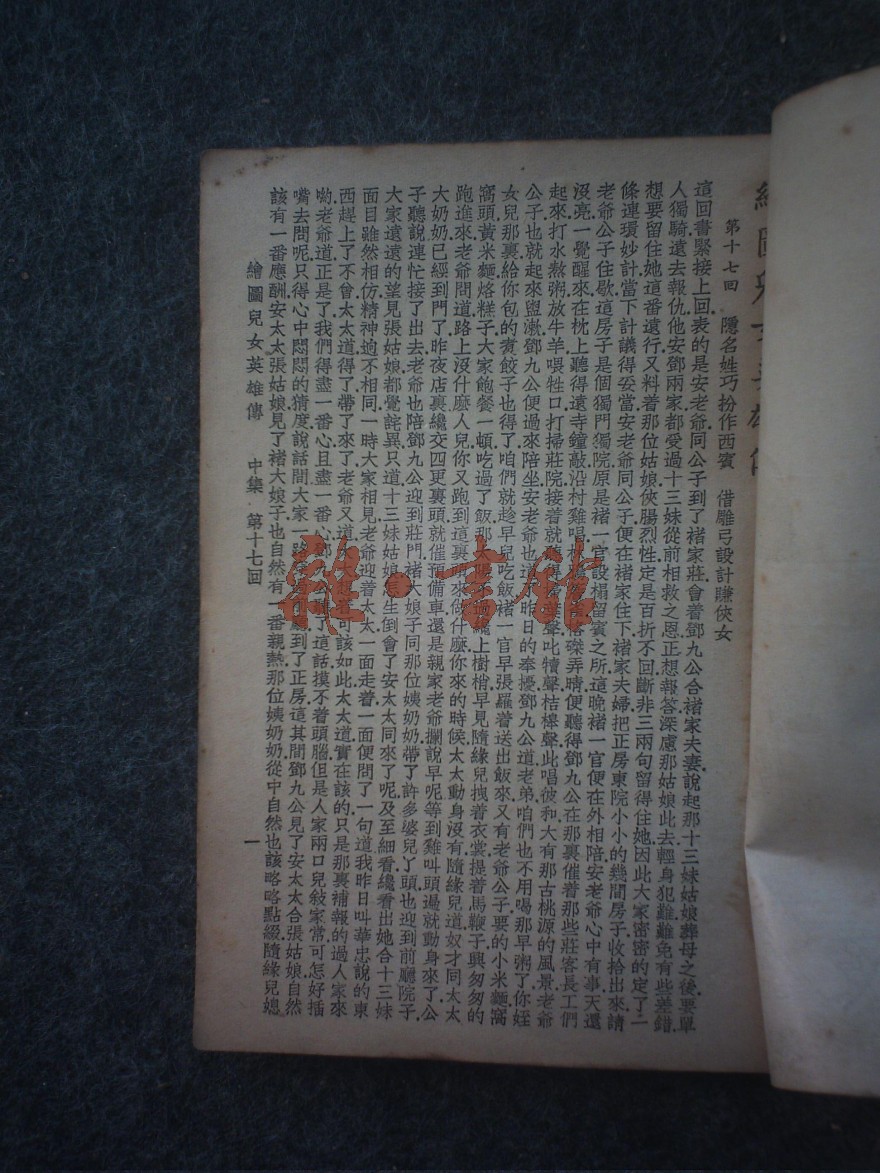 第十七回　隱名姓巧扮作西賓　借雕弓設計賺俠女
這回書緊接上回表的是安老爺同公子到了褚家莊會着鄧九公合褚家夫妻說起那十三妹姑娘葬母之後要單
人獨騎遠去報仇他安鄧兩家都愛過十三妹從前相救之恩正想報答深慮那姑娘此去輕身犯難難免有些差錯
想要留住她這番遠行又料着那位姑娘俠腸烈性定是百折不回斷非三兩句留得住她因此大家密密的定了一
條連環妙計當下計議得妥當安老爺同公子便在褚家住下褚家夫婦把正房東院小小的幾間房子收拾出來請
老爺公子住歇這房子是個獨門獨院原是褚一官設榻留賓之所這晚褚一官便在外相陪安老爺心中有事天還
沒亮一覺醒來在枕上聽得遠寺鐘敲沿村雞唱
磔弄晴便聽得鄧九公在那裏催着那些莊客長工們
起來打水熬粥放牛羊喂牲口打掃莊院接着就
聲叱犢聲桔槔聲此唱彼和大有那古桃源的風景老爺
公子也就起來盥漱鄧九公便過來陪坐安老爺也道
昨日的奉擾鄧九公道老弟咱們也不用喝那早粥了你姪
女兒那裏給你包的煮餃子也得了咱們就趁早兒吃飯褚一官早張羅着送出飯來又有老爺公子要的小米麵窩
窩頭黃米麵烙糕子大家飽餐一頓吃過了飯那太陽不過纔上樹梢早見隨緣兒拽着衣裳提着馬鞭子興匆匆的
跑進來老爺問道路上沒什麼人兒你又跑到這裏頭來做什麼你來的時候太太動身沒有隨緣兒道奴才同太太
大奶奶已經到門了昨夜店裏纔交四更裏頭就催預備車還是親家老爺攔說早呢等到雞叫頭遍就動身來了公
子聽說連忙接了出去老爺也陪鄧九公迎到莊門褚大娘子同那位姨奶奶帶了許多婆兒丫頭也迎到前廳院子
大家遠遠的望見張姑娘都覺詫異只道十三妹姑娘怎生倒會了安太太同來了呢及至細看纔看出她合十三妹
面目雖然相仿精神迥不相同一時大家相見老爺迎着太太一面走着一面便問了一句道我昨日叫華忠說的東
西趕上了不曾太太道得了帶了來了老爺又道太太想着可該如此太太道實在該的只是那裏補報的過人家來
喲老爺道正是了我們得盡一番心且盡一番心鄧九公聽了這話摸不着頭腦但是人家兩口兒敍家常可怎好插
嘴去問呢只得心中悶悶的猜度說話間大家一路
到了正房這其間鄧九公見了安太太合張姑娘自然
該有一番應酬安太太張姑娘見了褚大娘子也自然有一番親熱那位姨奶奶從中自然也該略略點綴隨緣兒媳
繪圖兒女英雄傳　中集　第十七回　一
雜·書館